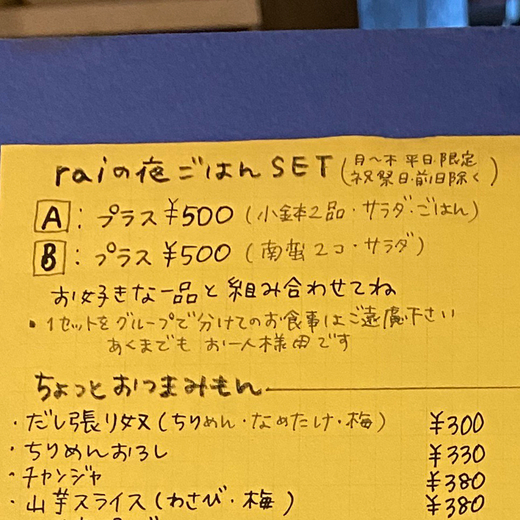 raiの夜ごはんSET(月〜木 平日限定
祝祭日・前日除く)
A:プラス¥500(小鉢2品・サラダ・ごはん)
B:プラス¥500(南蛮2コ・サラダ)
お好きな一品と組み合わせてね
・1セットをグループで分けてのお食事はご遠慮下さい
あくまでも お一人様用です
ちょっとおつまみもん
・だし張り奴(ちりめん・なめたけ・梅) ¥300
・ちりめんおろし ¥330
・チャンジャ ¥380
・山芋スライス(わさび・梅) ¥380